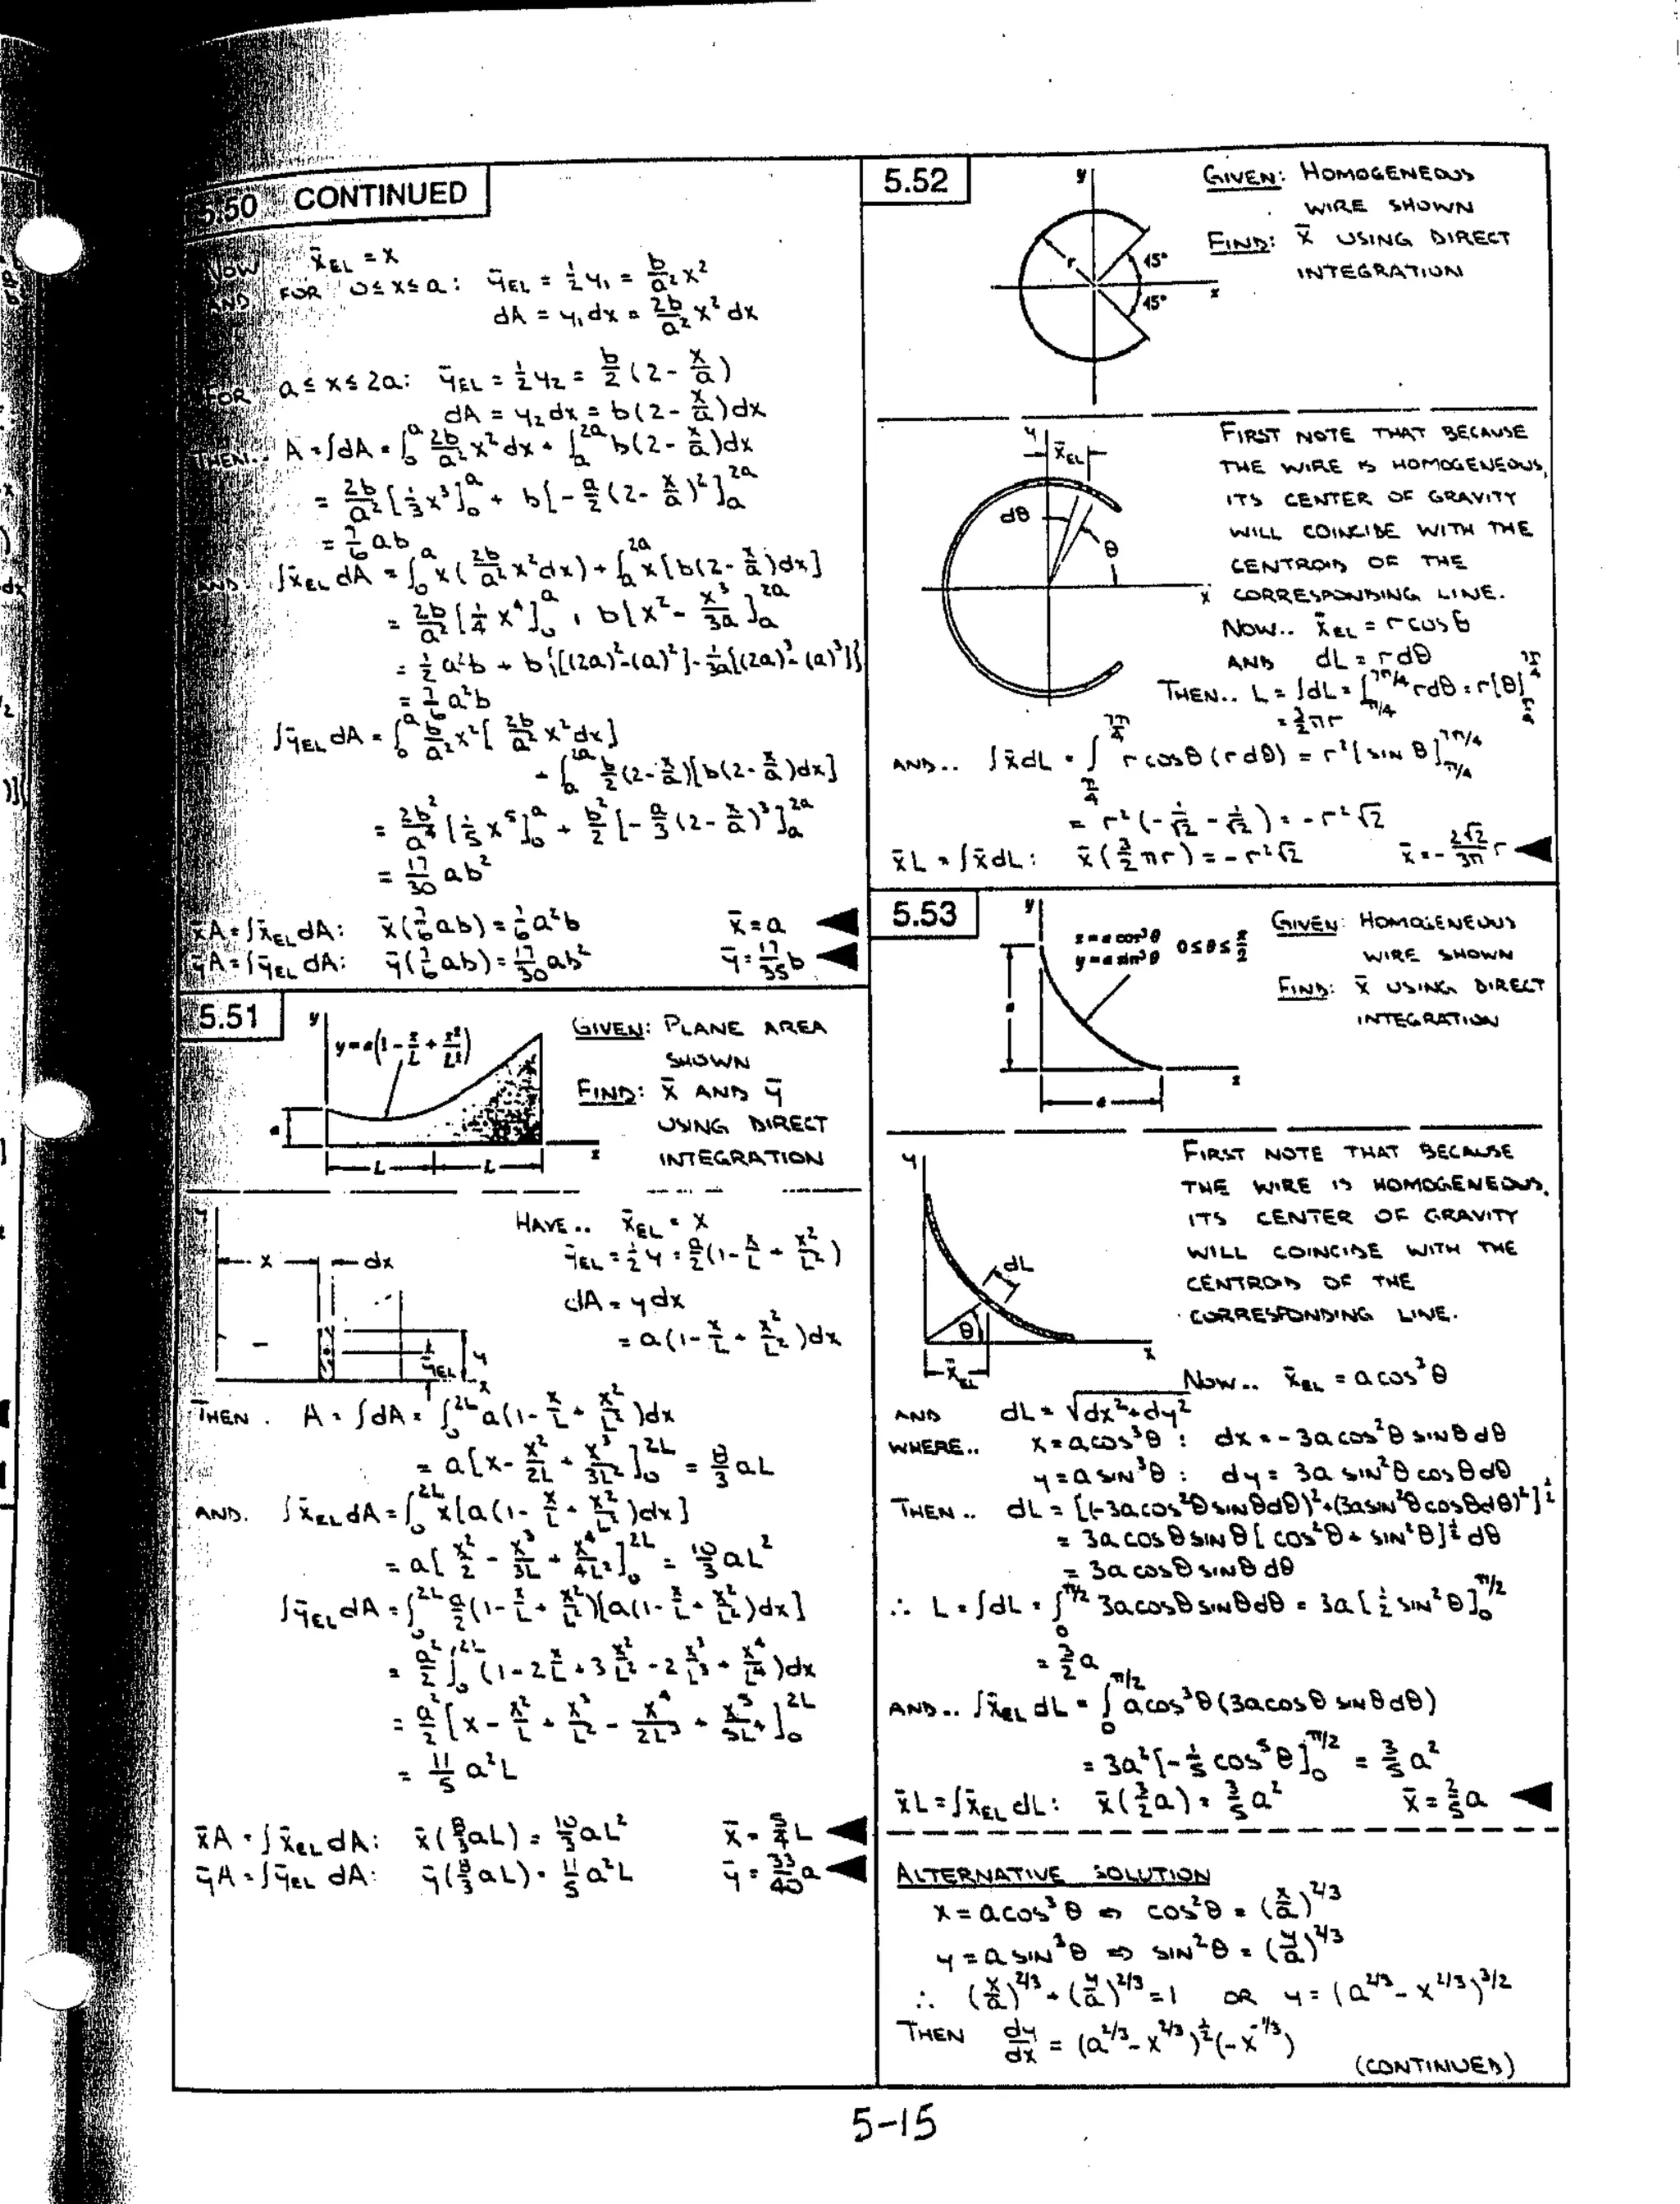 5.50 CONTINUED
NOW x̄EL = x
AND FOR 0 ≤ x ≤ a: ȳEL = ½ y₁ = b/a² x²
dA = y₁dx = 2b/a² x² dx
FOR a ≤ x ≤ 2a: ȳEL = ½ y₂ = b/2 (2 - x/a)
dA = y₂ dx = b(2 - x/a)dx
THEN.. A = ∫dA = ∫₀ᵃ 2b/a² x² dx + ∫ₐ²ᵃ b(2 - x/a)dx
= 2b/a² [⅓x³]₀ᵃ + b[-a/2 (2 - x/a)²]ₐ²ᵃ
= 7/6 ab
AND. ∫x̄EL dA = ∫₀ᵃ x(2b/a² x² dx) + ∫ₐ²ᵃ x[b(2 - x/a)dx]
= 2b/a² [¼ x⁴]₀ᵃ + b[x² - x³/3a]ₐ²ᵃ
= ½ a²b + b{[(2a)² - (a)²] - 1/3a[(2a)³ - (a)³]}
= 7/6 a²b
∫ȳEL dA = ∫₀ᵃ b/a² x² [2b/a² x² dx]
+ ∫ₐ²ᵃ b/2 (2 - x/a)[b(2 - x/a)dx]
= 2b²/a⁴ [⅕ x⁵]₀ᵃ + b²/2 [-a/3 (2 - x/a)³]ₐ²ᵃ
= 17/30 ab²
x̄A = ∫x̄EL dA: x̄(7/6 ab) = 7/6 a²b x̄ = a ◀
ȳA = ∫ȳEL dA: ȳ(7/6 ab) = 17/30 ab² ȳ = 17/35 b ◀
5.51
y
y = a(1 - x/L + x²/L²)
a
L L x
GIVEN: PLANE AREA
SHOWN
FIND: x̄ AND ȳ
USING DIRECT
INTEGRATION
x dx
ȳEL y
x
HAVE.. x̄EL = x
ȳEL = ½ y = a/2 (1 - x/L + x²/L²)
dA = y dx
= a(1 - x/L + x²/L²)dx
THEN. A = ∫dA = ∫₀²ᴸ a(1 - x/L + x²/L²)dx
= a[x - x²/2L + x³/3L²]₀²ᴸ = 8/3 aL
AND. ∫x̄EL dA = ∫₀²ᴸ x[a(1 - x/L + x²/L²)dx]
= a[x²/2 - x³/3L + x⁴/4L²]₀²ᴸ = 10/3 aL²
∫ȳEL dA = ∫₀²ᴸ a/2 (1 - x/L + x²/L²)[a(1 - x/L + x²/L²)dx]
= a²/2 ∫₀²ᴸ (1 - 2 x/L + 3 x²/L² - 2 x³/L³ + x⁴/L⁴)dx
= a²/2 [x - x²/L + x³/L² - x⁴/2L³ + x⁵/5L⁴]₀²ᴸ
= 11/5 a²L
x̄A = ∫x̄EL dA: x̄(8/3 aL) = 10/3 aL² x̄ = 5/4 L ◀
ȳA = ∫ȳEL dA: ȳ(8/3 aL) = 11/5 a²L ȳ = 33/40 a ◀
5.52
y
r
45°
45°
x
GIVEN: HOMOGENEOUS
WIRE SHOWN
FIND: x̄ USING DIRECT
INTEGRATION
y
x̄EL
dθ
θ
x
FIRST NOTE THAT BECAUSE
THE WIRE IS HOMOGENEOUS,
ITS CENTER OF GRAVITY
WILL COINCIDE WITH THE
CENTROID OF THE
CORRESPONDING LINE.
NOW.. x̄EL = r cos θ
AND dL = r dθ
THEN.. L = ∫dL = ∫π/4^7π/4 r dθ = r[θ]π/4^7π/4
= 3/2 πr
AND.. ∫x̄dL = ∫π/4^7π/4 r cos θ (r dθ) = r²[sin θ]π/4^7π/4
= r²(-1/√2 - 1/√2) = -r²√2
x̄L = ∫x̄dL: x̄(3/2 πr) = -r²√2 x̄ = -2√2/3π r ◀
5.53
y
x = a cos³θ 0 ≤ θ ≤ π/2
y = a sin³θ
a
a
x
GIVEN: HOMOGENEOUS
WIRE SHOWN
FIND: x̄ USING DIRECT
INTEGRATION
y
dL
θ
x̄EL
x
FIRST NOTE THAT BECAUSE
THE WIRE IS HOMOGENEOUS,
ITS CENTER OF GRAVITY
WILL COINCIDE WITH THE
CENTROID OF THE
CORRESPONDING LINE.
NOW.. x̄EL = a cos³θ
AND dL = √dx²+dy²
WHERE.. x = a cos³θ : dx = -3a cos²θ sin θ dθ
y = a sin³θ : dy = 3a sin²θ cos θ dθ
THEN.. dL = [(-3a cos²θ sin θ dθ)² + (3a sin²θ cos θ dθ)²]^½
= 3a cos θ sin θ [cos²θ + sin²θ]^½ dθ
= 3a cos θ sin θ dθ
∴ L = ∫dL = ∫₀^π/2 3a cos θ sin θ dθ = 3a[½ sin²θ]₀^π/2
= 3/2 a
AND.. ∫x̄EL dL = ∫₀^π/2 a cos³θ (3a cos θ sin θ dθ)
= 3a²[-⅕ cos⁵θ]₀^π/2 = 3/5 a²
x̄L = ∫x̄EL dL: x̄(3/2 a) = 3/5 a² x̄ = 2/5 a ◀
ALTERNATIVE SOLUTION
x = a cos³θ ⇒ cos²θ = (x/a)^2/3
y = a sin³θ ⇒ sin²θ = (y/a)^2/3
∴ (x/a)^2/3 + (y/a)^2/3 = 1 OR y = (a^2/3 - x^2/3)^3/2
THEN dy/dx = (a^2/3 - x^2/3)^½ (-x^-1/3)
(CONTINUED)
5-15